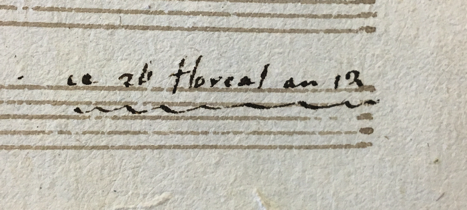 ce 26 floreal an 12